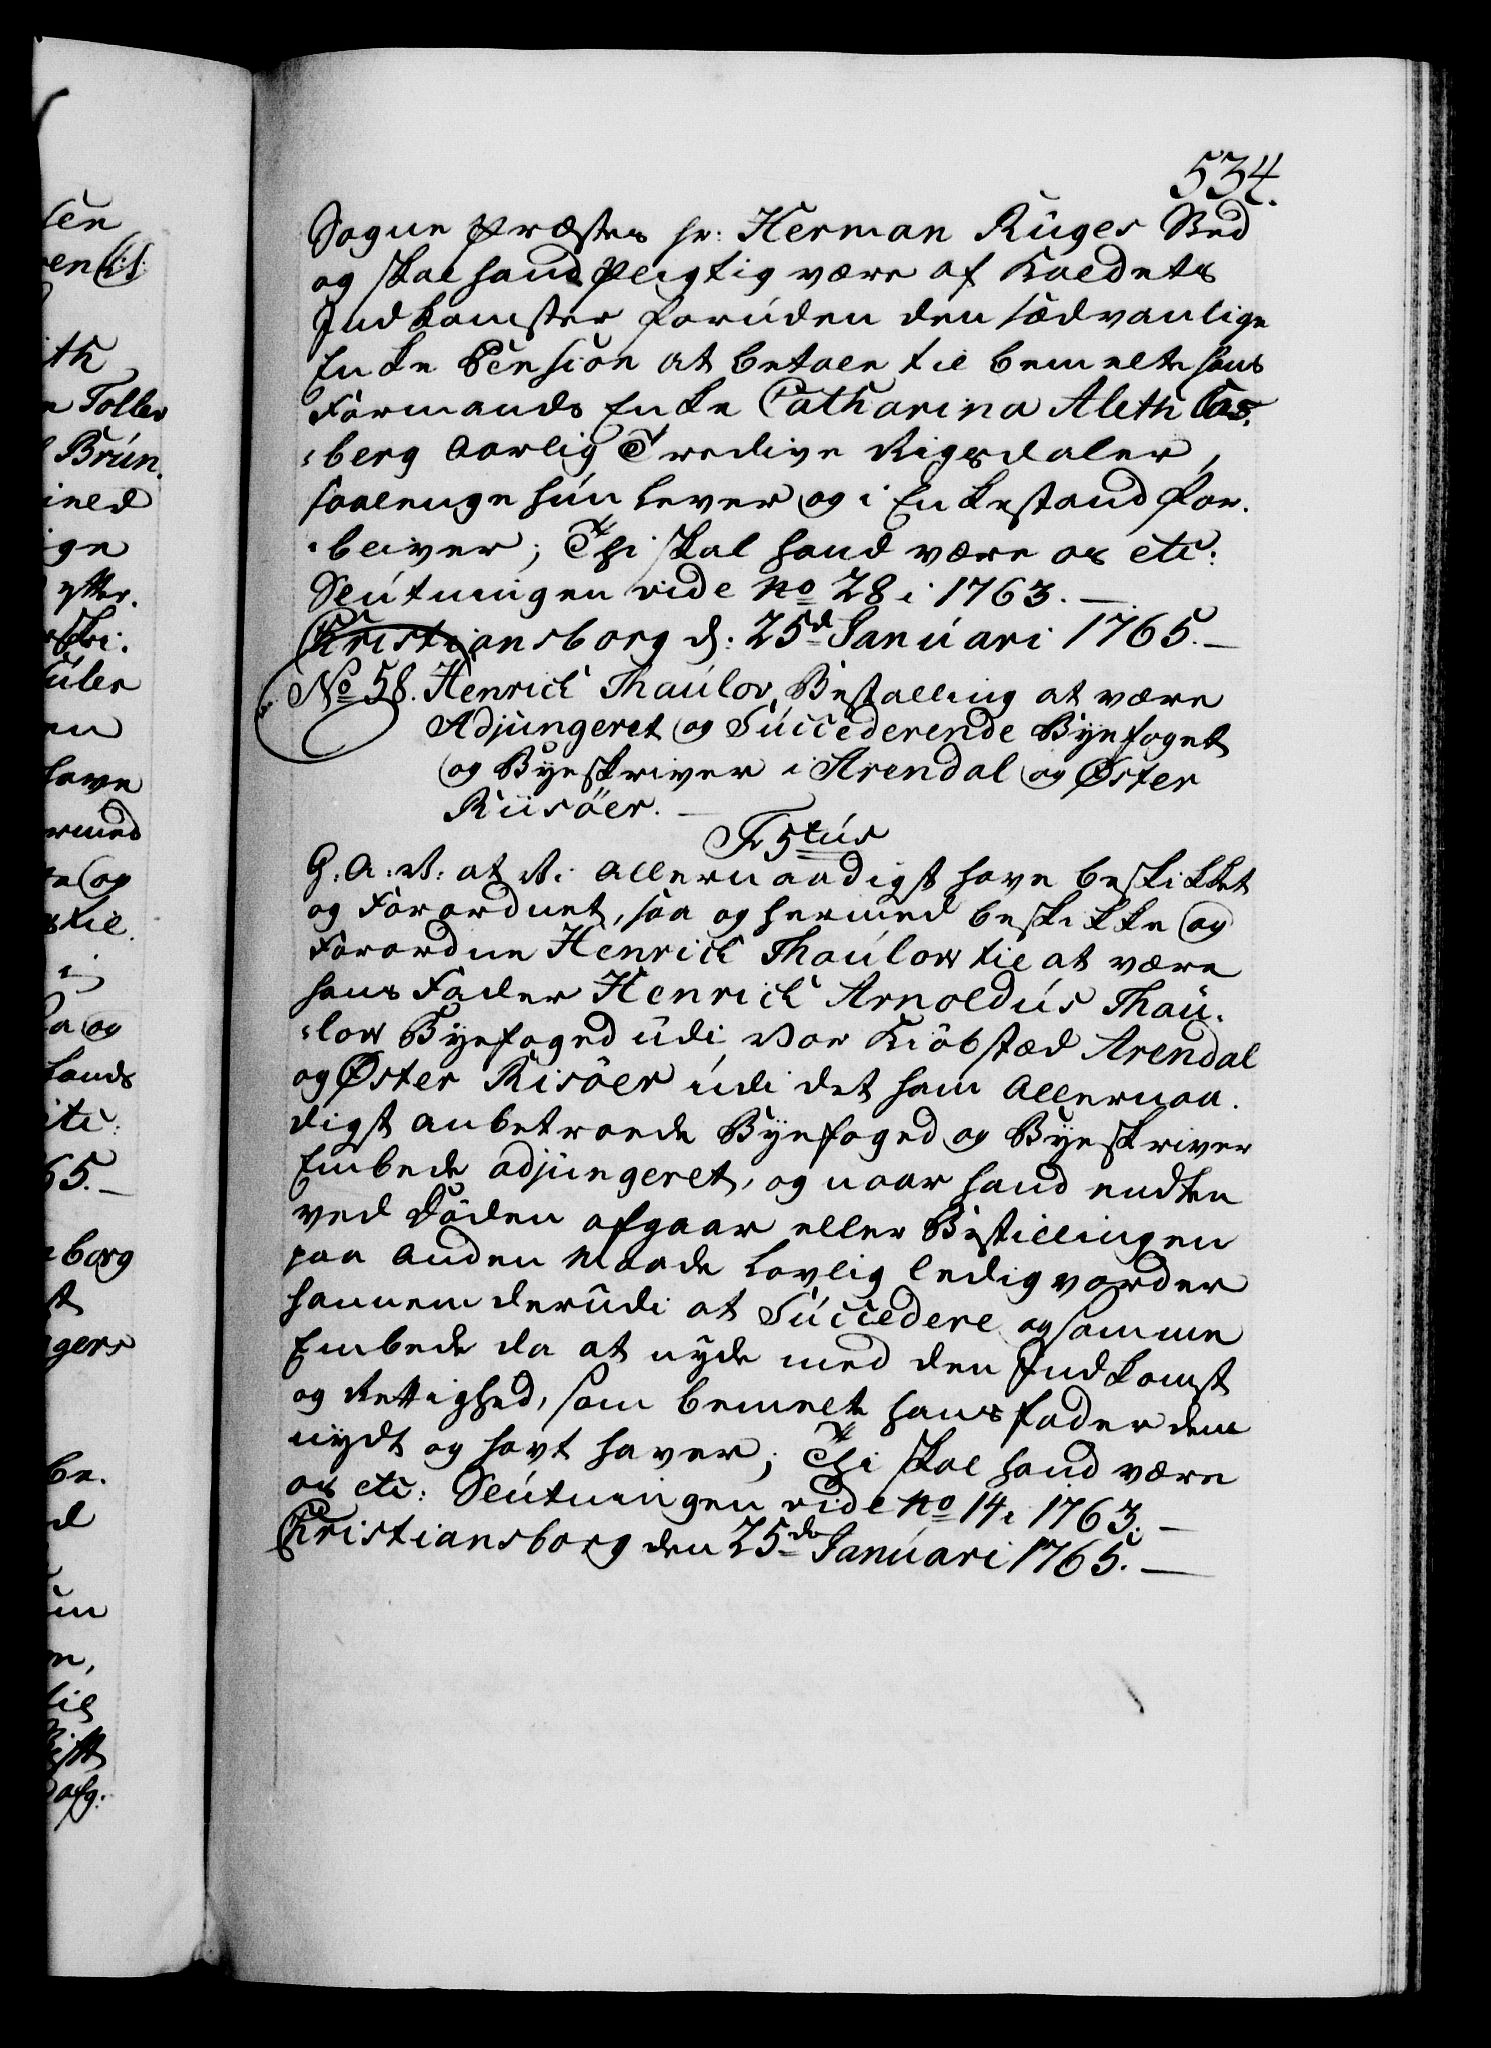 534.
Sogne Præstes hr: Herman Rüges Sted
og skal hand pligtig være af Kaldets
Indkomster foruden den sædvanlige
Enke Pension at betale til bemelte hans
Formands Enke Catharina Aleth Cas-
-berg aarlig Tredive Rigsdaler,
saalenge hun lever og i Enkestand for-
-bliver; Thi skal hand være os etc:
Slutningen vide No 28 i 1763.—
Christiansborg d: 25d Januari 1765.—
No 58. Henrich Thaulov Bestalling at være
Adjungeret og Succederende Byefoget
og Byeskriver i Arendal og Øster
Riisöer.—
Fr 5tus
G. A. V: at Vi allernaadigst have beskikket
og Forordnet, saa og hermed beskikke og
Forordne Henrich Thaulow til at være
hans Fader Henrich Arnoldus Thau-
-low Byefoged udi vor Kiöbstæd Arendal
og Øster Risöer udi det ham allernaa-
digst anbetroede Byefoged og Byeskriver
Embede adjungeret, og naar hand endten
ved Döden afgaar eller Bestillingen
paa anden Maade lovlig ledig vorder
hannem derudi at Succedere og samme
Embede da at nyde med den Indkomst
og Rettighed, som bemelte hans fader dem
nydt og havt haver; Thi skal hand være
os etc: Slutningen vide No 14 i 1763.—
Christiansborg den 25de Januari 1765.—